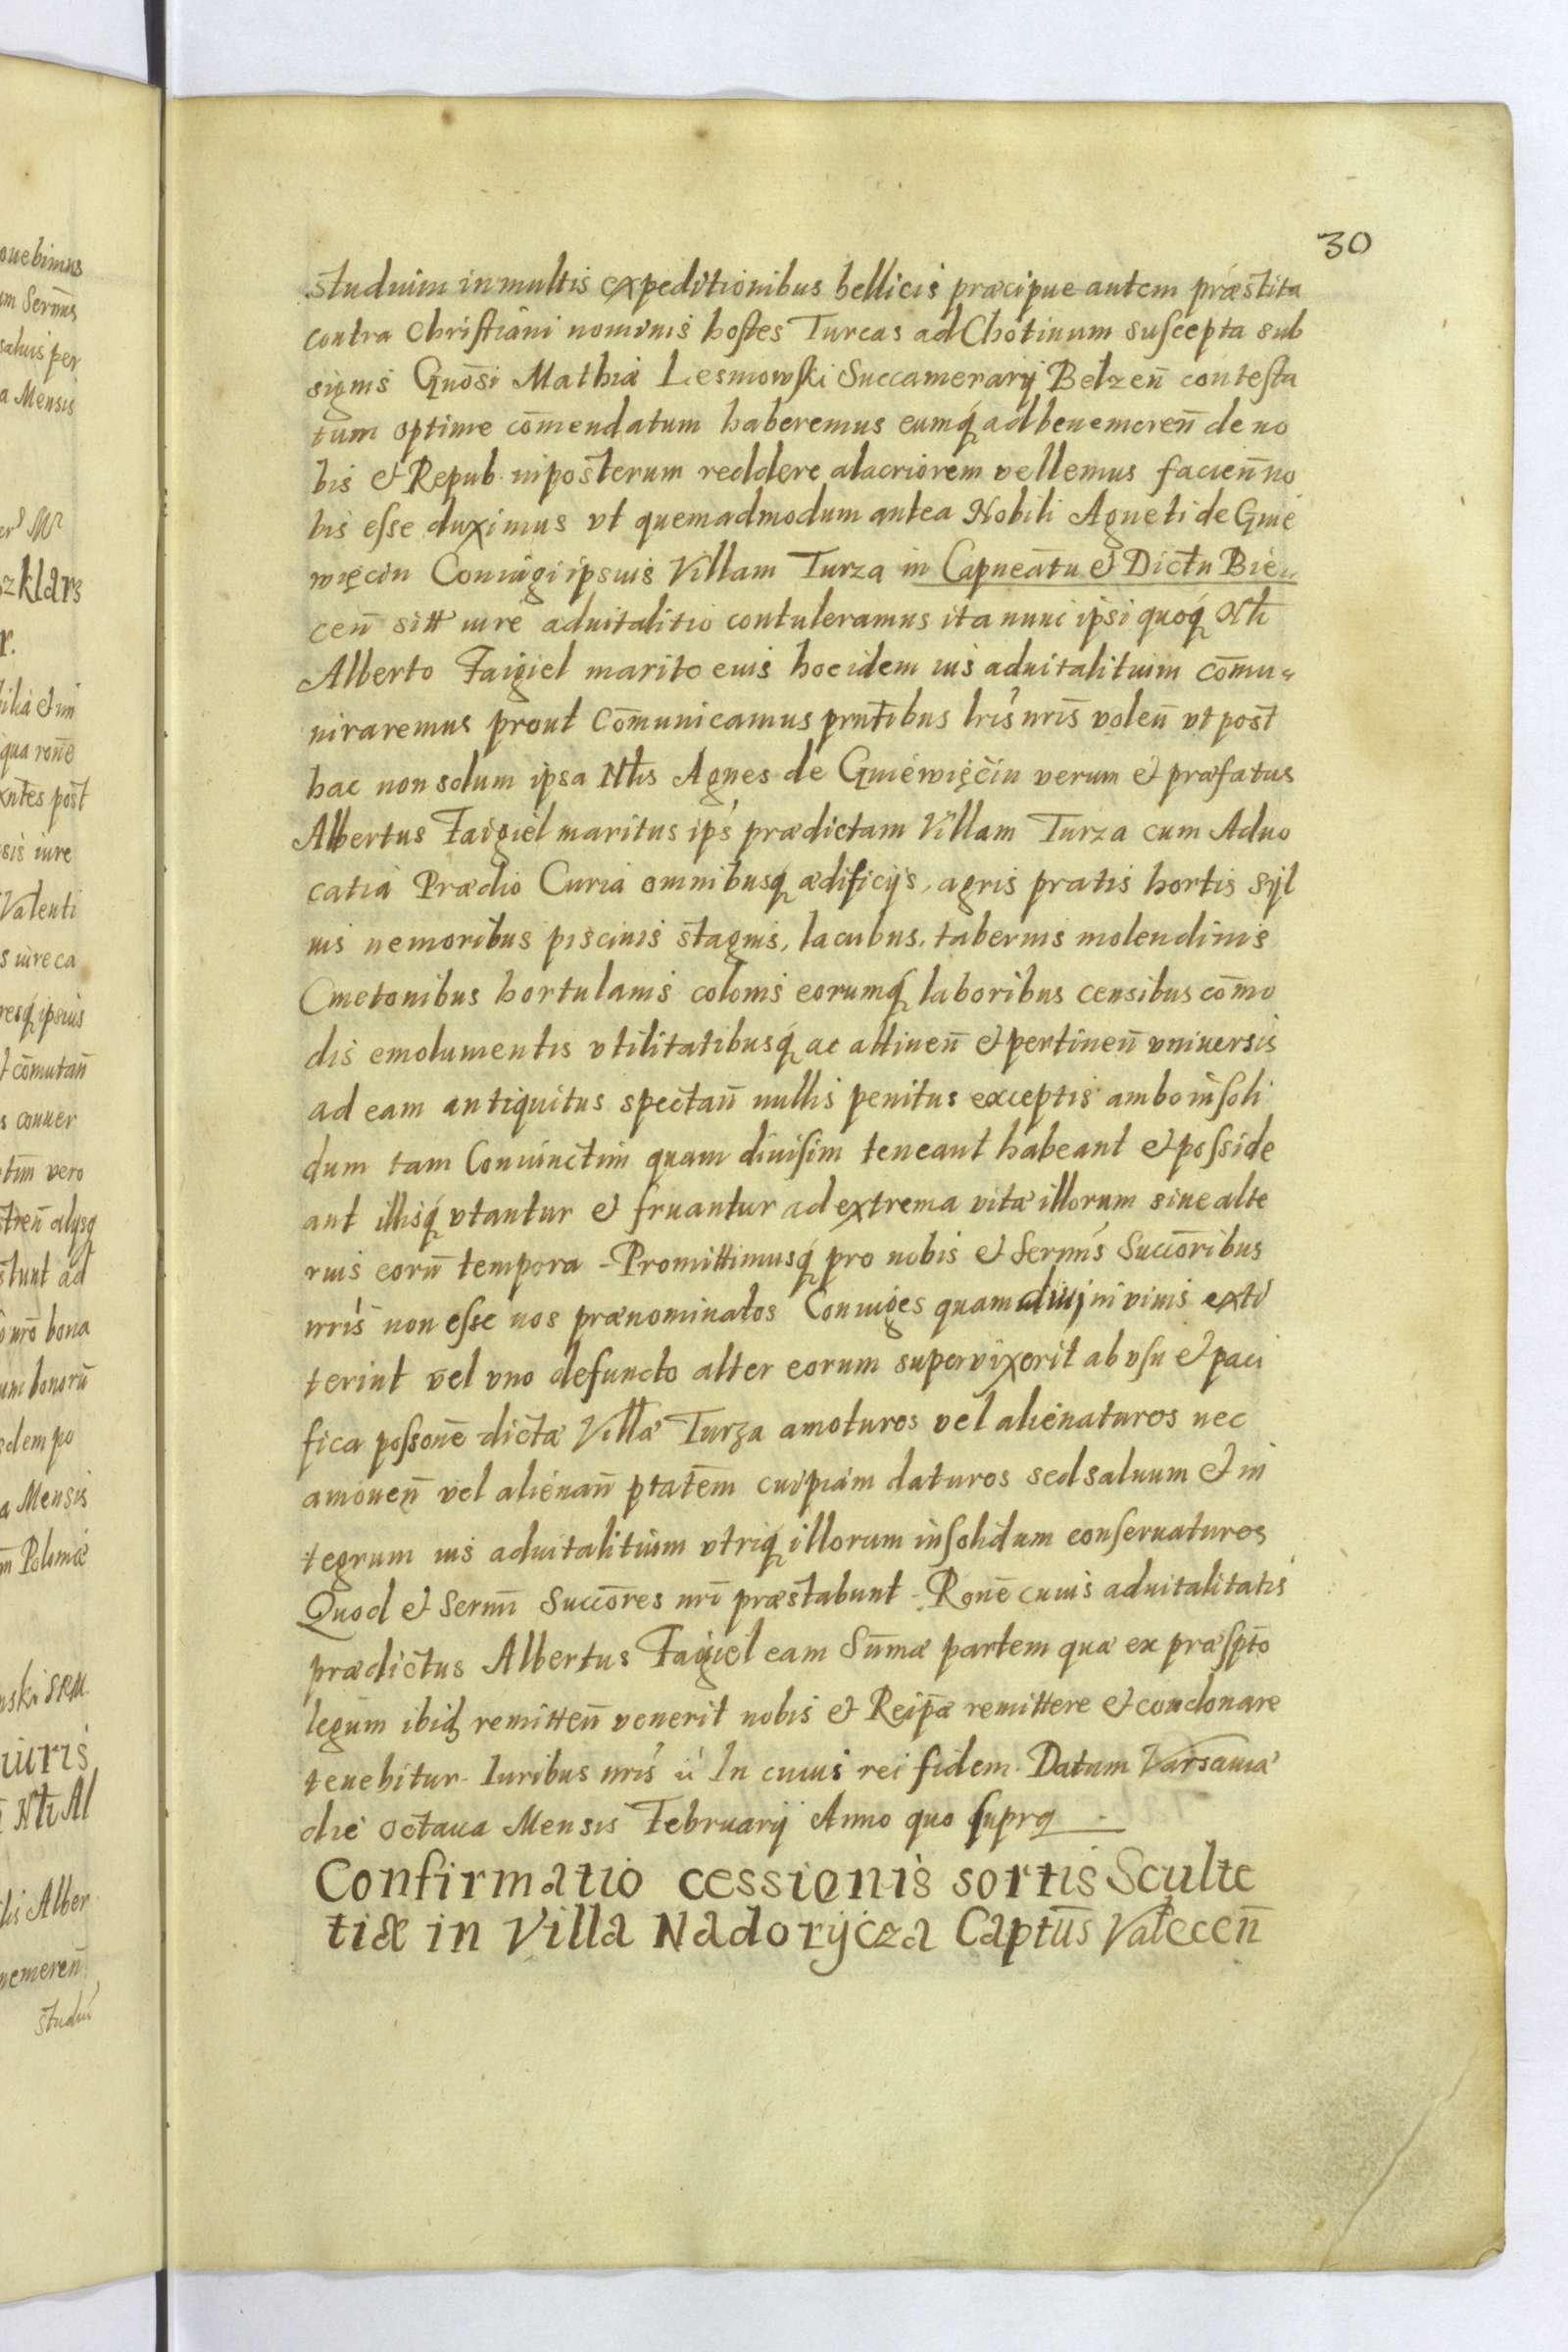 30
studium in multis expeditionibus bellicis præcipue autem præstita
contra Christiani nominis hostes Turcas ad Chotinum suscepta sub
signis Gnōsi Mathiæ Lesniowski Succamerarij Belzen̄ contesta
tum optime com̄endatum haberemus eumq́ ad benemeren̄ de no
bis et Repub. in posterum reddere alacriorem vellemus facien̄ no
bis esse duximus vt quemadmodum antea Nobili Agneti de Gnie
więcin Coniugi ipsius Villam Turza in Capneātu et Dictu Bie
cen̄ sitt iure aduitalitio contuleramus ita nunc ipsi quoq́ Nli
Alberto Faigiel marito eius hoc idem ius aduitalitium com̄u
nicaremus prout Com̄unicamus pr̄ntibus lr̄is nr̄is volen̄ vt post
hac non solum ipsa Nlis Agnes de Gniéwięcin verum et præfatus
Albertus Faigiel maritus ips' prædictam Villam Turza cum Aduo
catia Prædio Curia omnibusq́ ædificijs, agris pratis hortis syl
uis nemoribus piscinis stagnis, lacubus, tabernis molendinis
Cmetonibus hortulanis colonis eorumq́ laboribus censibus com̄o
dis emolumentis vtilitatibusq́ ac attinen̄ et pertinen̄ vniuersis
ad eam antiquitus spectan̄ nullis penitus exceptis ambo in soli
dum tam Coniunctim quam diuisim teneant habeant et posside
ant illisq́ vtantur et fruantur ad extrema vitæ illorum siue alte
rius eorū tempora - Promittimusq́ pro nobis et Sermīs Succōribus
nr̄is non esse nos prænominatos Coniuges quamdiu in viuis exti
terint vel vno defuncto alter eorum supervixerit ab vsu et paci
fica possōne dictæ Villæ Turza amoturos vel alienaturos nec
amouen̄ vel alienan̄ ptatēm cuipiam daturos sed saluum et in
tegrum ius aduitalitium vtriq́ illorum in solidum conseruaturos
Quod et Sermī Succōres nr̄i præstabunt - Ronē cuius aduitalitatis
prædictus Albertus Faigiel eam Sum̄æ partem quæ ex præsptō
legum ibid remitten̄ venerit nobis et Reip̄æ remittere et condonare
tenebitur. Iuribus nr̄is ū In cuius rei fidem. Datum Varsauiæ
die octaua Mensis Februarij Anno quo supra
Confirmatio cessionis sortis Sculte
tiæ in Villa Nadorÿcza Captūs Valecen̄